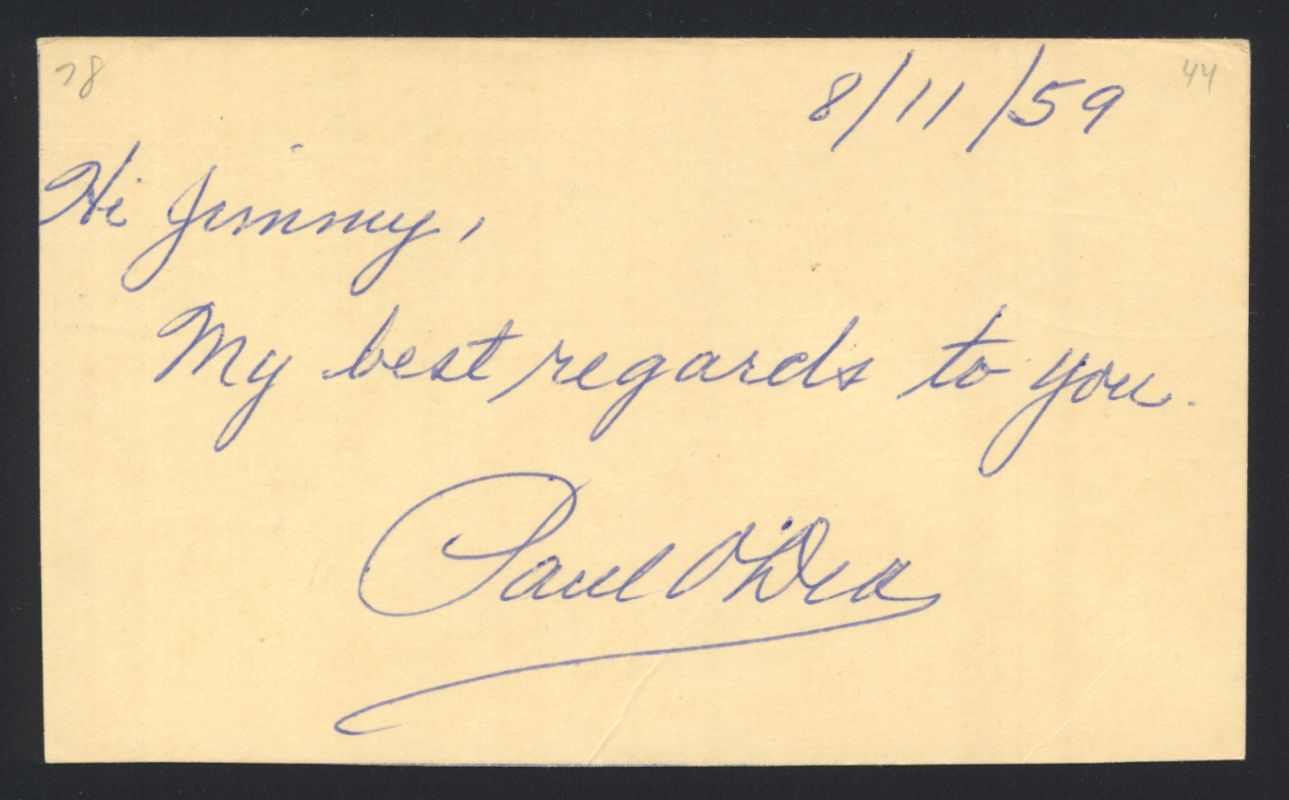 78
44
8/11/59
Hi Jimmy,
My best regards to you.
Paul O'Dea